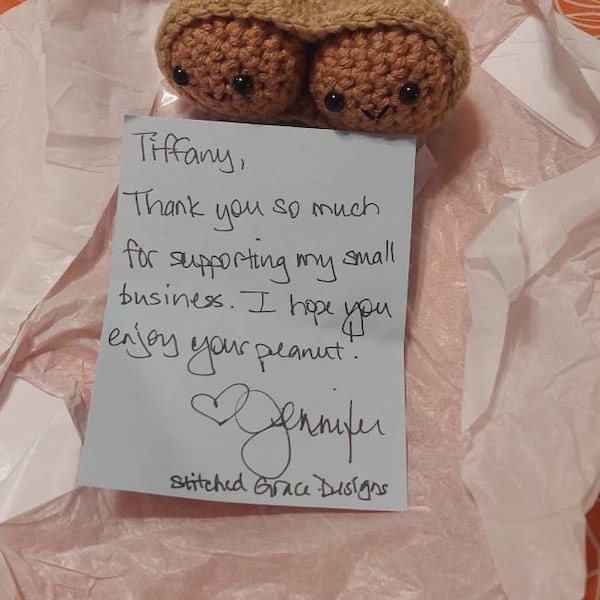 Tiffany,
Thank you so much
for supporting my small
business. I hope you
enjoy your peanut!
♡ Jennifer
Stitched Grace Designs